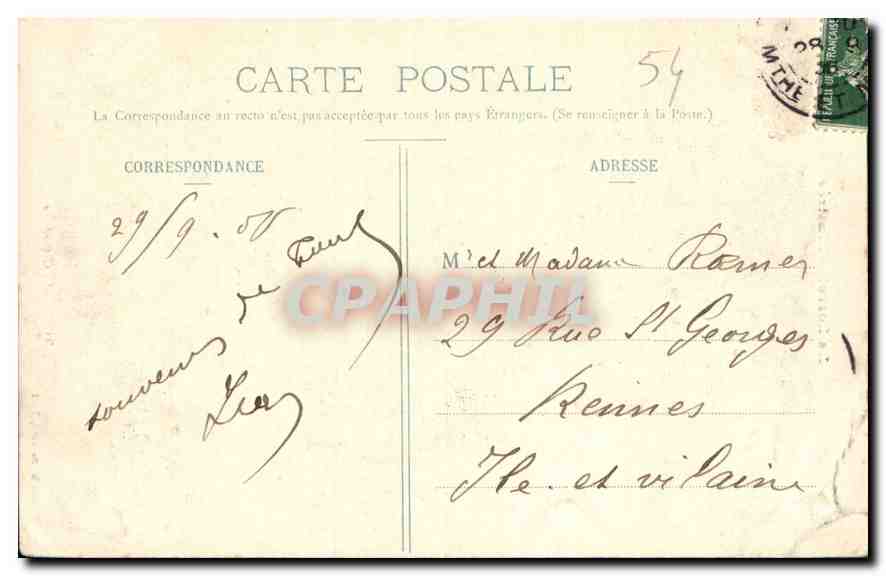 CARTE POSTALE
54
La Correspondance au recto n'est pas acceptée par tous les pays Étrangers. (Se renseigner à la Poste.)
CORRESPONDANCE
ADRESSE
29/9. 08
souvenirs de
M r et Madame Roemer
29 Rue St Georges
Rennes
Ile et vilaine
CPAPHIL
28